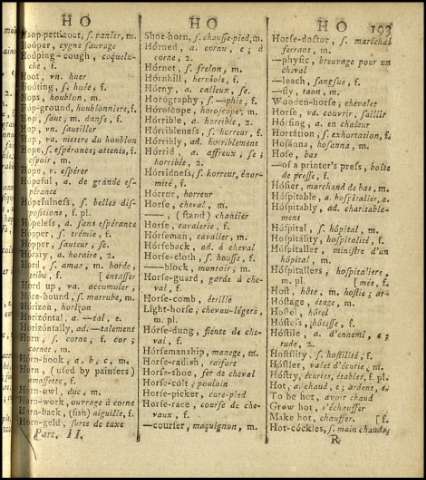 HO
HO
HO 193
Hoop-petticoat, s. panier, m.
Hooper, cygne sauvage
Hooping-cough, coqueluche, f.
Hoot, vn. huer
Hooting, s. huée, f.
Hops, houblon, m.
Hop-ground, houblonniere, f.
Hop, saut; m. danse, f.
Hop, vn. sautiller
Hop, va. mettre du houblon
Hope, s. espérance; attente, f.
espoir, m.
Hope, v. espérer
Hopeful, a. de grande espérance
Hopefulness, s. belles dispositions, f. pl.
Hopeless, a. sans espérance
Hopper, s. trémie, f.
Hopper, sauteur, se.
Horary, a. horaire, 2.
Hord, s. amas, m. horde,
tribu, f. [entasser
Hord up, va. accumuler,
Hore-hound, s. marrube, m.
Horizon, horizon
Horizontal, a. —tal, e.
Horizontally, ad. —talement
Horn, s. corne, f. cor;
cornet, m.
Horn-book, a, b, c, m.
Horn, (used by painters)
amassette, f.
Horn-owl, duc, m.
Horn-work, ouvrage à corne
Horn-back, (fish) aiguille, f.
Horn-geld, sorte de taxe
Part. II.
Shoe-horn, s. chausse-pied, m.
Horned, a. cornu, e; à
corne, 2.
Hornet, s. frelon, m.
Hornhill, herniole, f.
Horny, a. calleux, se.
Horography, s. —phie, f.
Horoscope, horoscope, m.
Horrible, a. horrible, 2.
Horribleness, s. horreur, f.
Horribly, ad. horriblement
Horrid, a. affreux, se;
horrible, 2.
Horridness, s. horreur, énormité, f.
Horror, horreur
Horse, cheval, m.
——, (stand) chantier
Horse, cavalerie, f.
Horseman, cavalier, m.
Horseback, ad. à cheval
Horse-cloth, s. housse, f.
——block, montoir, m.
Horse-guard, garde à cheval, f.
Horse-comb, étrille
Light-horse, chevau-légers,
m. pl.
Horse-dung, fiente de cheval, f.
Horsemanship, manege, m.
Horse-radish, raifort
Horse-shoe, fer de cheval
Horse-colt; poulain
Horse-picker, cure-pied
Horse-race, course de chevaux, f.
—courser, maquignon, m.
Horse-doctor, s. maréchal
ferrant, m.
—physic, breuvage pour un
cheval
—leech, sangsue, f.
—fly, taon, m.
Wooden-horse, chevalet
Horse, va. couvrir, saillir
Horsing, a. en chaleur
Hortation, s. exhortation, f.
Hosanna, hosanna, m.
Hose, bas
—of a printer's press, boîte
de presse, f.
Hosier, marchand de bas, m.
Hospitable, a. hospitalier, e.
Hospitably, ad. charitablement
Hospital, s. hôpital, m.
Hospitality, hospitalité, f.
Hospitaller, ministre d'un
hôpital, m.
Hospitallers, hospitaliers,
m. pl. [mée, f.
Host, hôte, m. hostie; ar-
Hostage, étage, m.
Hostel, hôtel
Hostess, hôtesse, f.
Hostile, a. d'ennemi, e;
rude, 2.
Hostility, s. hostilité, f.
Hostler, valet d'écurie, m.
Hostry, écurie, étables, f. pl.
Hot, a. chaud, e; ardent, e.
To be hot, avoir chaud
Grow hot, s'échauffer
Make hot, chauffer. [f.
Hot-cockles, s. main chaude,
R